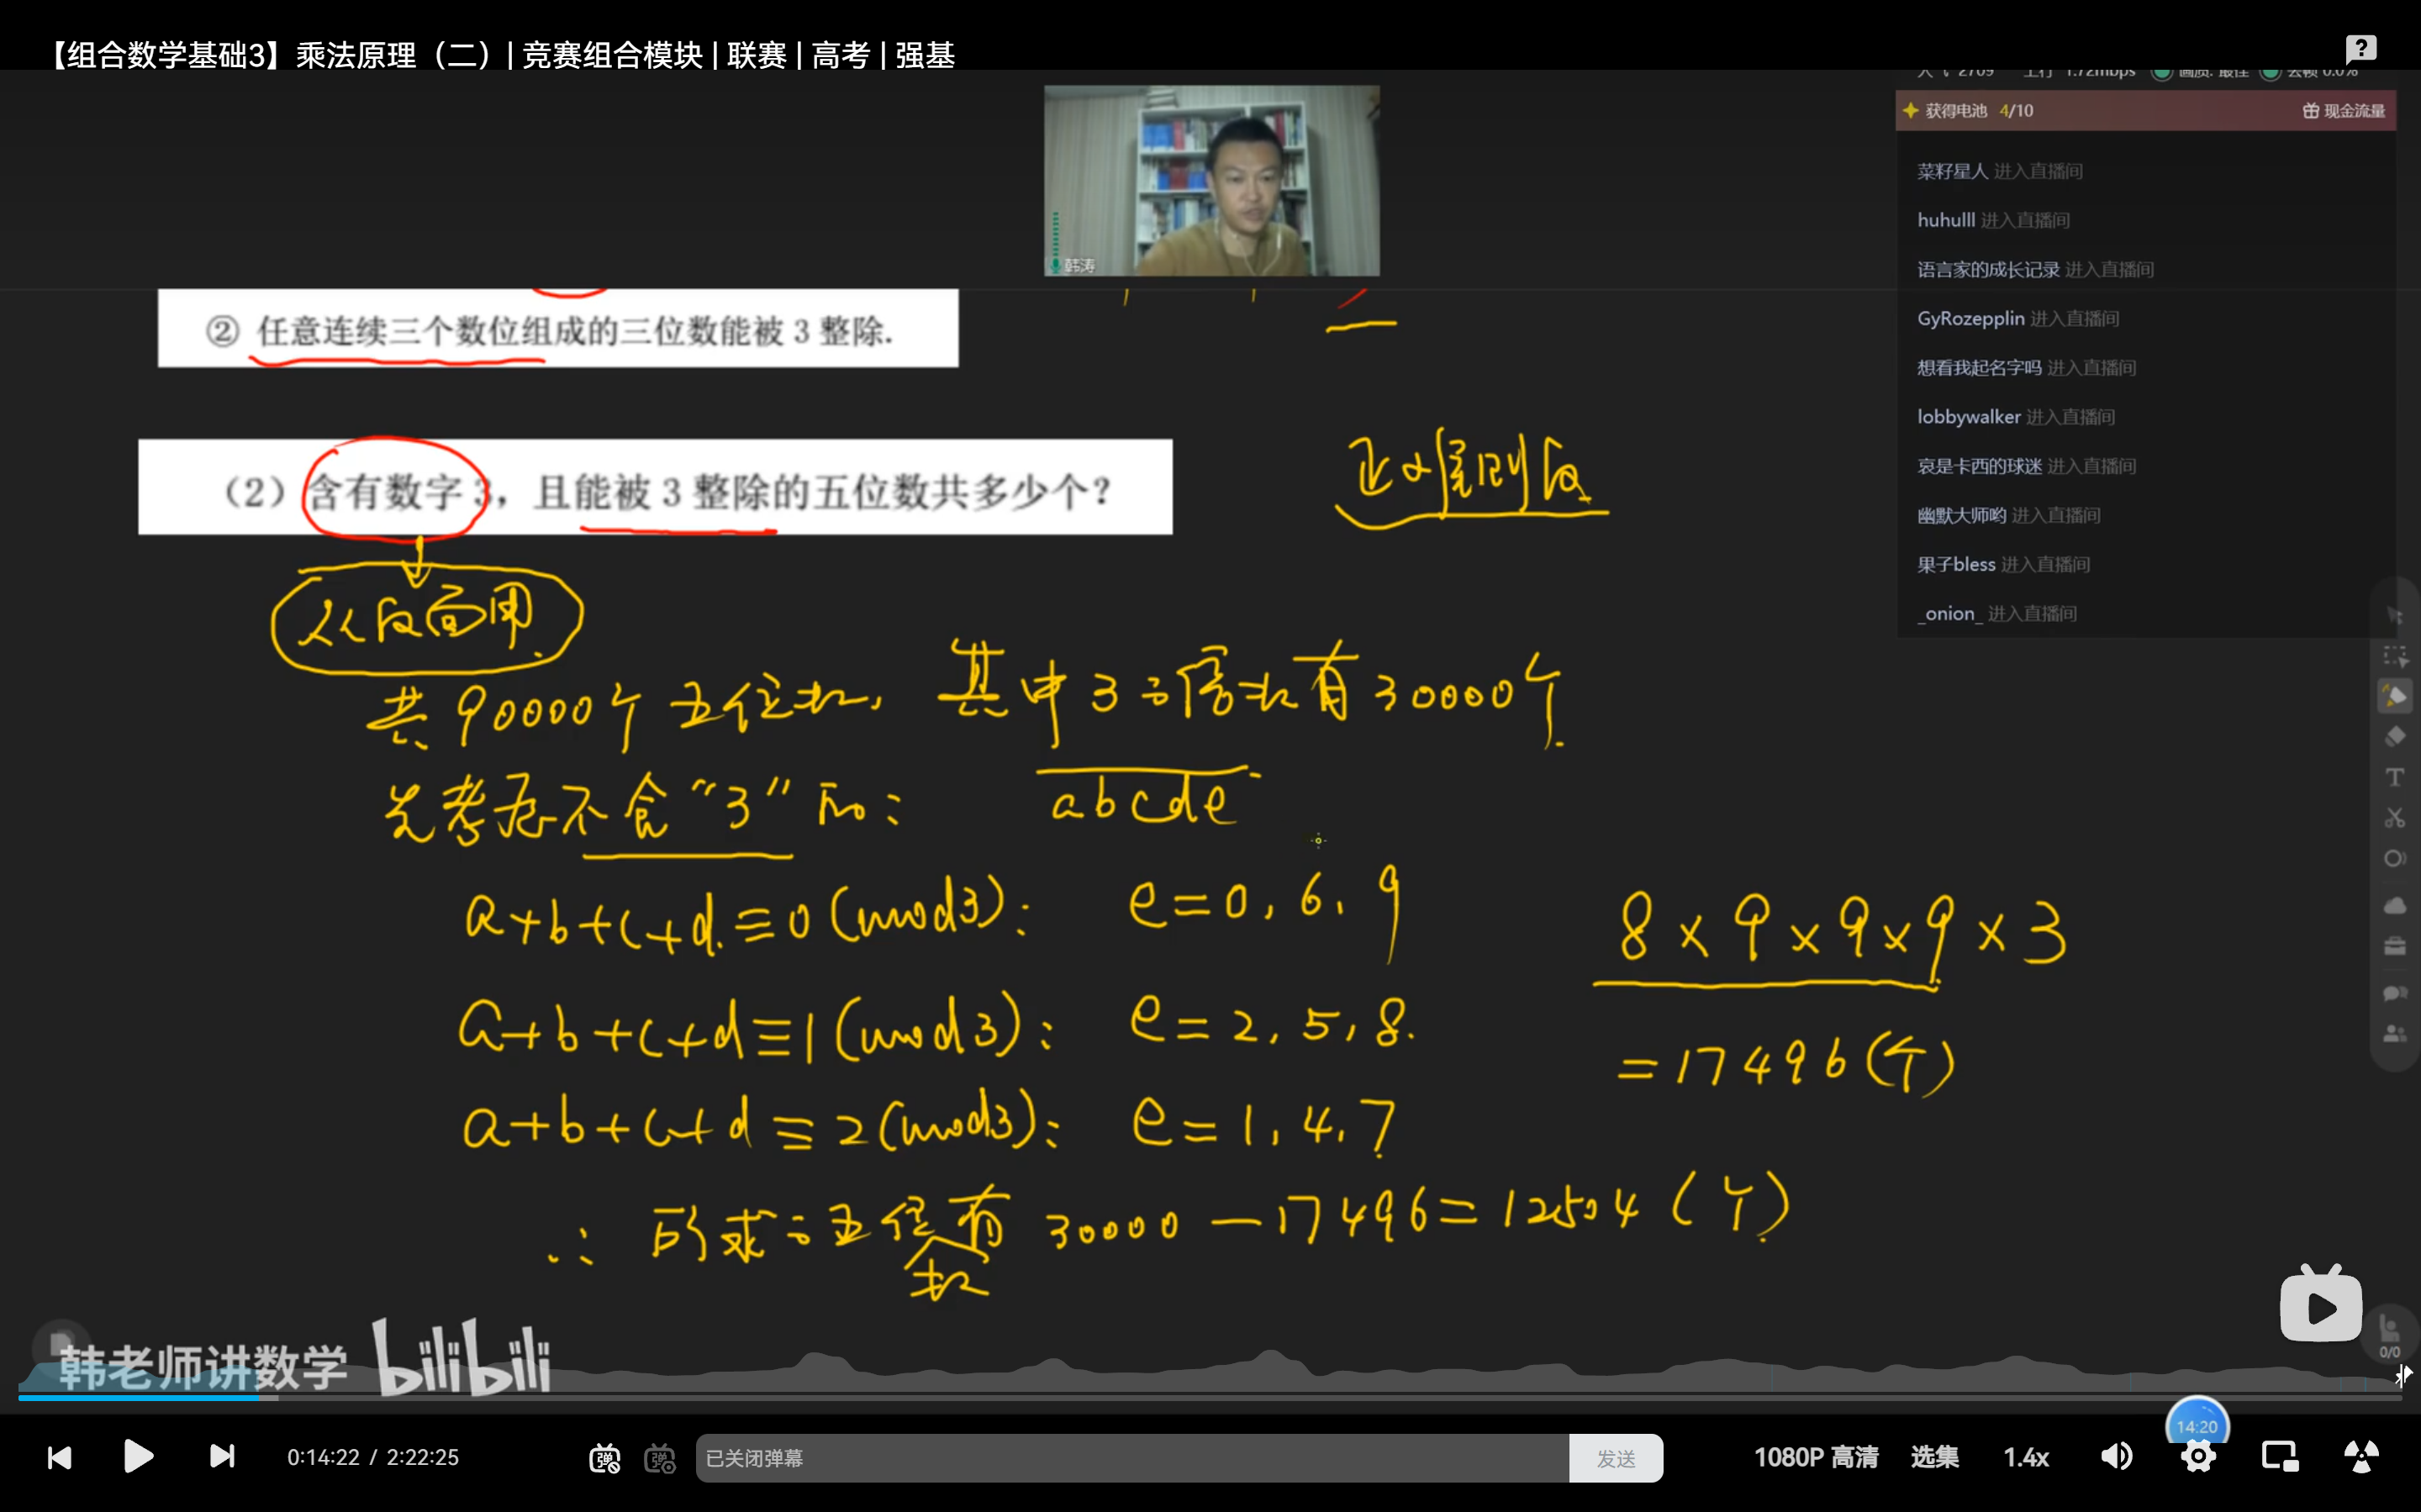 【组合数学基础3】乘法原理（二）| 竞赛组合模块 | 联赛 | 高考 | 强基
人气 2709 上行 1.72mbps 画质: 最佳 丢帧 0.0%
获得电池 4/10 现金流量
菜籽星人 进入直播间
huhulll 进入直播间
语言家的成长记录 进入直播间
GyRozepplin 进入直播间
想看我起名字吗 进入直播间
lobbywalker 进入直播间
哀是卡西的球迷 进入直播间
幽默大师哟 进入直播间
果子bless 进入直播间
_onion_ 进入直播间
韩涛
② 任意连续三个数位组成的三位数能被 3 整除.
（2）含有数字 3，且能被 3 整除的五位数共多少个?
正难则反
从反面用.
共90000个五位数, 其中3的倍数有30000个.
先考虑不含“3”的: abcde
a+b+c+d≡0(mod3): e=0, 6, 9
8×9×9×9×3
a+b+c+d≡1(mod3): e=2, 5, 8.
=17496(个)
a+b+c+d≡2(mod3): e=1, 4, 7
∴ 所求的五位数有 30000-17496=12504(个)
韩老师讲数学 bilibili
0/0
14:20
0:14:22 / 2:22:25 已关闭弹幕 发送 1080P 高清 选集 1.4x